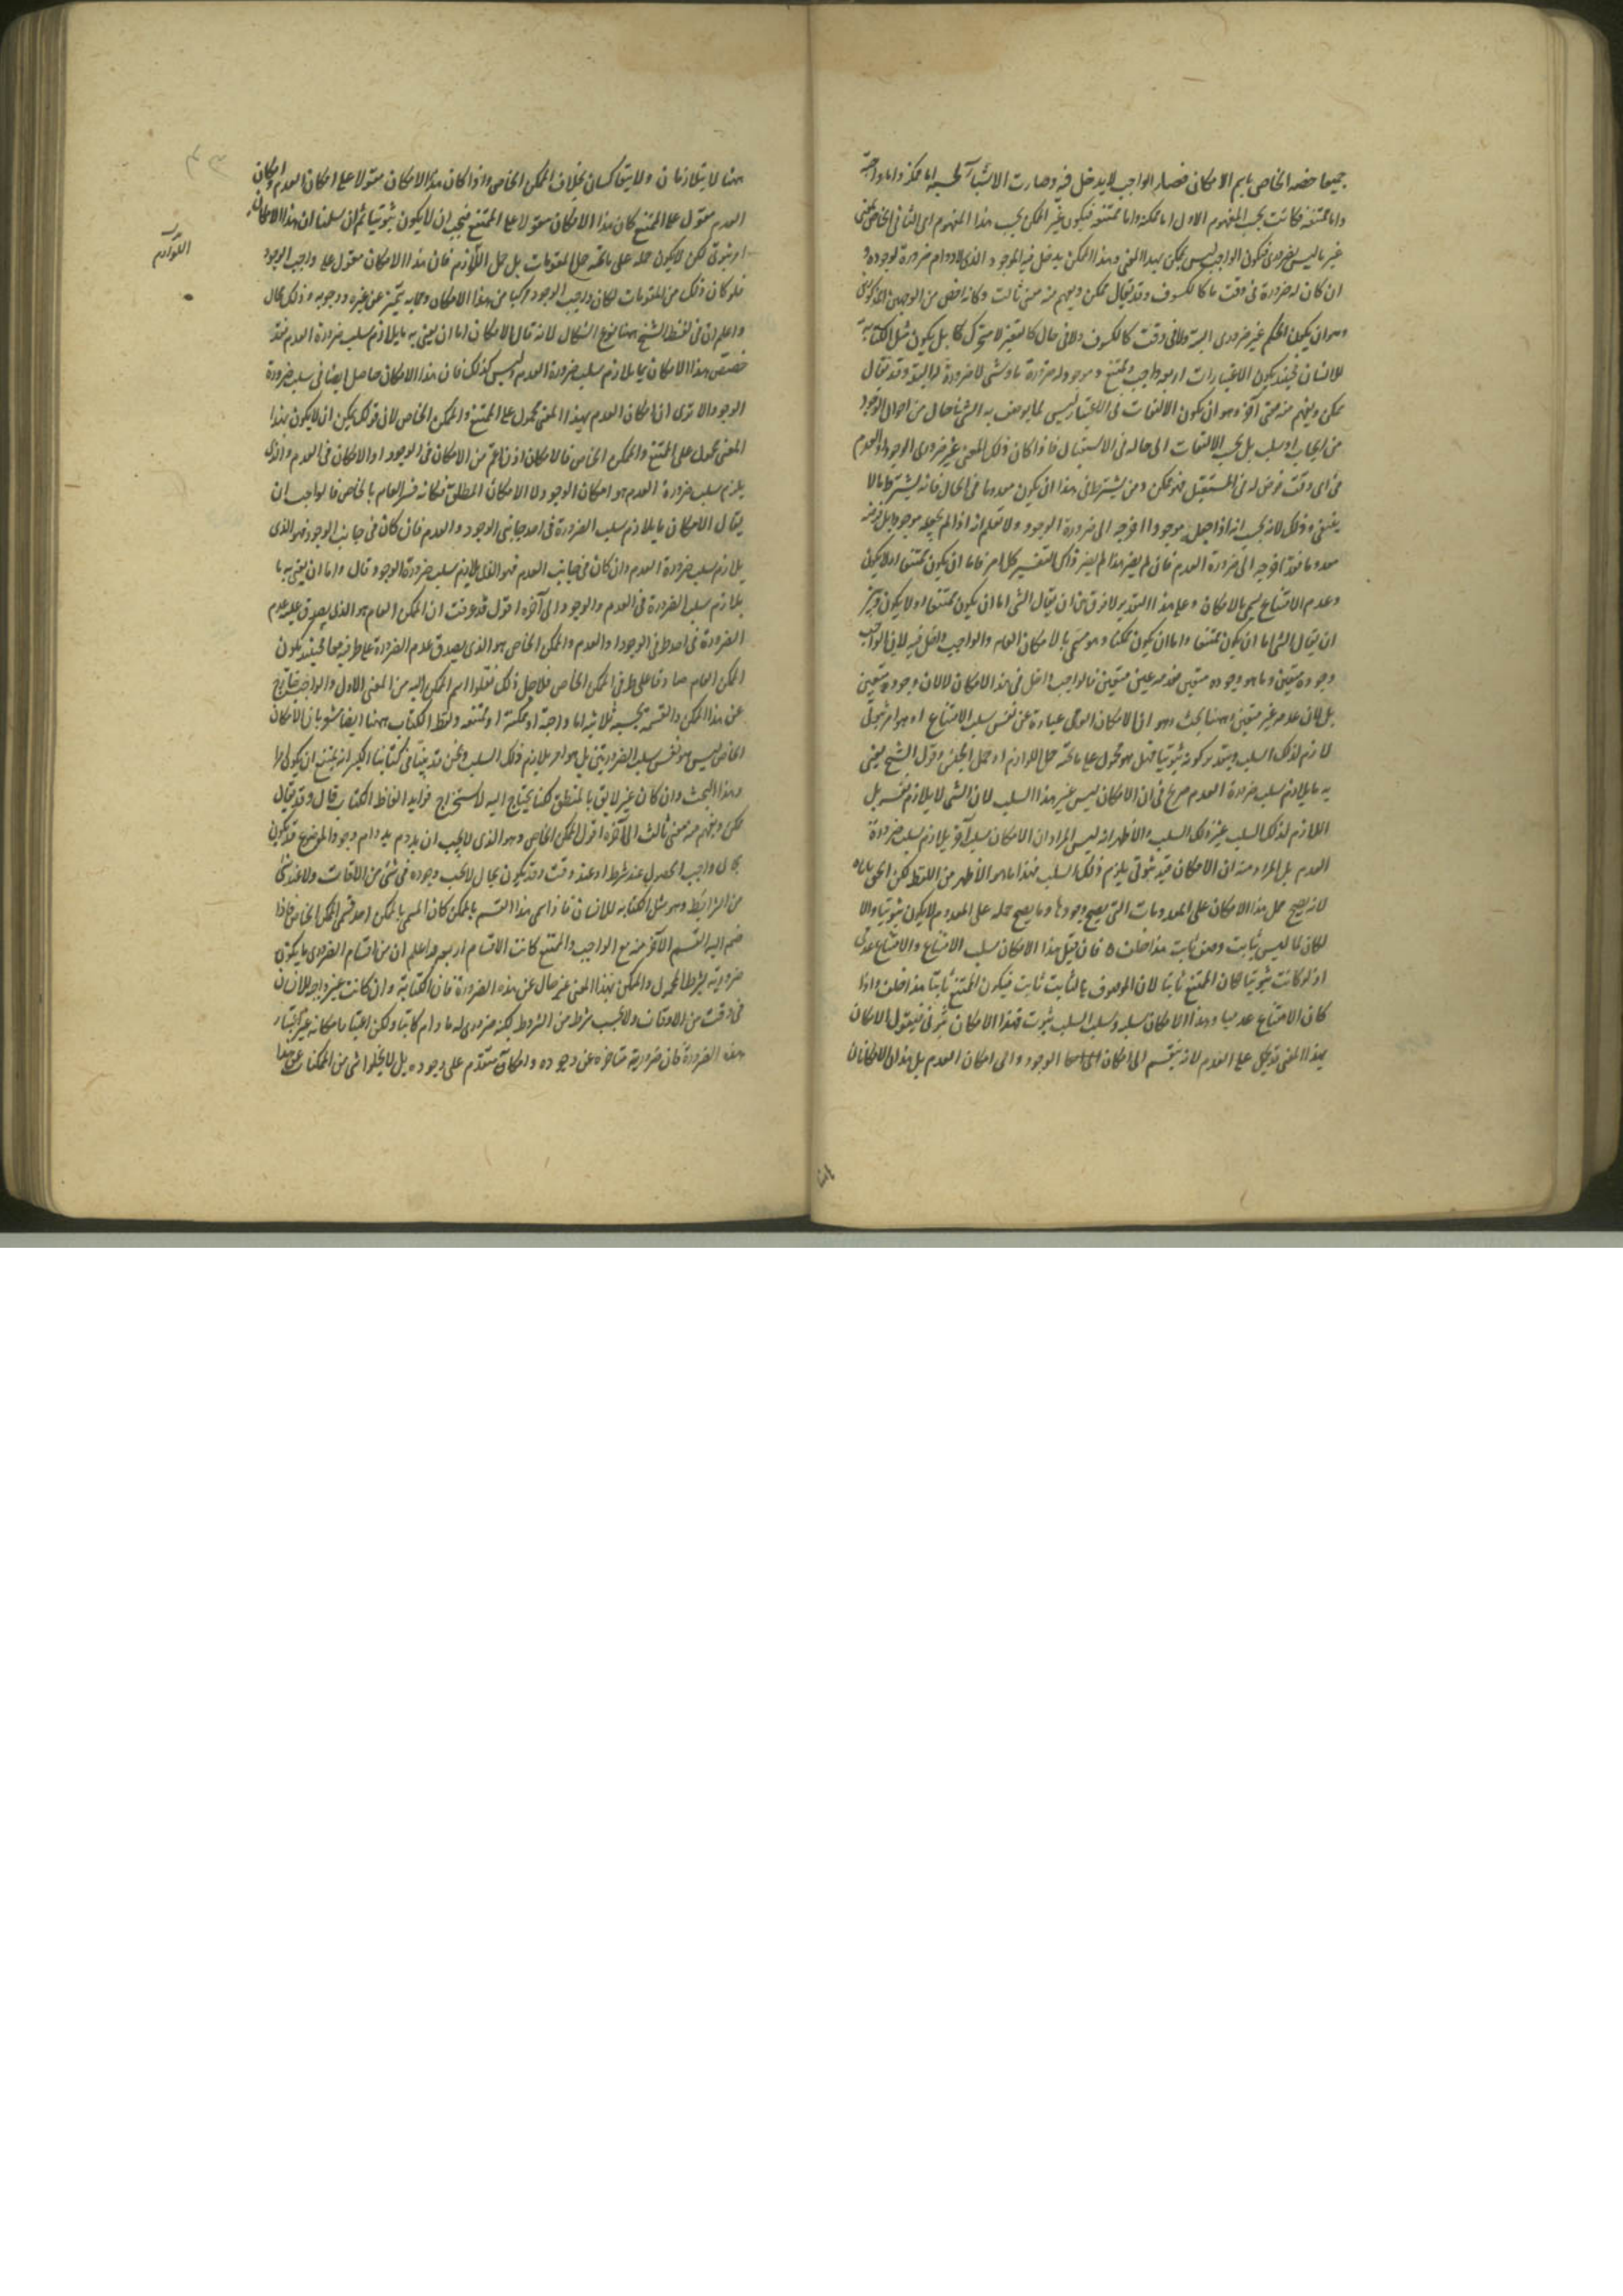 جميعا خصه الخاص باسم الامكان فصار الواجب لا يدخل فيه وصارت الاشيا بحسبه اما ممكنة واما واجبة
واما ممتنعة وكانت بحسب المفهوم الاول اما ممكنة واما ممتنعة فيكون غير الممكن بحسب هذا المفهوم اى الثانى الخاص بمعنى
غير ما ليس بضرورى فيكون الواجب ليس بممكن بهذا المعنى وهذا الممكن يدخل فيه الموجود الذى لا دوام ضرورة لوجوده و
ان كان له ضرورة فى وقت ما كالكسوف وقد يقال ممكن ويفهم منه معنى ثالث وكانه اخص من الوجهين المذكورين
وهو ان يكون الحكم غير ضرورى البتة ولا فى وقت كالكسوف ولا فى حال كالتغير للمتحرك بل يكون مثل الكتابة
للانسان فحينئذ يكون الاعتبارات اربعة واجب وممتنع وموجود له ضرورة ما وشى لا ضرورة له البتة وقد يقال
ممكن ويفهم منه معنى آخر وهو ان يكون الالتفات فى الاعتبار ليس لما يوصف به الشى فى حال من احوال الوجود
من ايجاب او سلب بل بحسب الالتفات الى حاله فى الاستقبال فاذا كان ذلك المعنى غير ضرورى الوجود والعدم
فى اى وقت فرض له فى المستقبل فهو ممكن ومن يشترط فى هذا ان يكون معدوما فى الحال فانه يشترط ما لا
ينبغى وذلك لانه يحسب انه اذا جعله موجودا اخرجه الى ضرورة الوجود ولا يعلم انه اذا لم يجعله موجودا بل فرضه
معدوما فقد اخرجه الى ضرورة العدم فان لم يضر هذا لم يضر ذاك التفسير كل امر فاما ان يكون ممتنعا او لا يكون
وعدم الامتناع يسمى بالامكان وعلى هذا التقدير لا فرق بين ان يقال الشى اما ان يكون ممتنعا او لا يكون وبين
ان يقال الشى اما ان يكون ممتنعا واما ان يكون ممكنا وهو مسمى بالامكان العام والواجب داخل فيه لان الواجب
بل لان عدمه غير متعين وههنا بحث وهو ان الامكان العامى عبارة عن نفس سلب الامتناع او هو امر ثبوتى
لازم لذلك السلب وبتقدير كونه ثبوتيا فهل هو محمول على ما تحته حمل اللوازم او حمل الجنس وقول الشيخ يعنى
به ما يلازم سلب ضرورة العدم صريح فى ان الامكان ليس عين هذا السلب لان الشى لا يلازم نفسه بل
اللازم لذلك السلب غير ذلك السلب والاظهر انه ليس المراد ان الامكان سلب آخر يلازم سلب ضرورة
العدم بل المراد منه ان الامكان قيد ثبوتى يلزم ذلك السلب فهذا ما هو الاظهر من اللفظ لكن الحق
لانه يصح حمل هذا الامكان على المعدومات التى يصح وجودها وما يصح حمله على المعدوم لا يكون ثبوتيا والا
لكان لما ليس بثابت وصف ثابت هذا خلف فان قيل هذا الامكان سلب الامتناع والامتناع عدمى
اذ لو كانت ثبوتيا لكان الممتنع ثابتا لان الموصوف بالثابت ثابت فيكون الممتنع ثابتا هذا خلف واذا
كان الامتناع عدميا وهذا الامكان سلبه وسلب السلب ثبوت فهذا الامكان ثبوتى فيقول الامكان
بهذا المعنى قد يحمل على العدم لانه ينقسم الى امكان الوجود والى امكان العدم بل هذان الامكانان
ههنا لا يتلازمان ولا يتعاكسان بخلاف الممكن الخاص واذا كان هذا الامكان مقولا على امكان العدم وامكان
العدم مقول على الممتنع كان هذا الامكان مقولا على الممتنع فيجب ان لا يكون ثبوتيا ثم ان سلمنا ان هذا الامكان
امر ثبوتى لكن لا يكون حمله على ما تحته حمل المقومات بل حمل اللوازم فان هذا الامكان مقول على واجب الوجود
اللوازم
فلو كان ذلك من المقومات لكان واجب الوجود مركبا من هذا الامكان ومما به يتميز عن غيره ووجوبه وذلك محال
واعلم ان فى لفظ الشيخ ههنا نوع اشكال لانه قال الامكان اما ان يعنى به ما يلازم سلب ضرورة العدم فقد
خصص هذا الامكان بما يلازم سلب ضرورة العدم وليس كذلك فان هذا الامكان حاصل ايضا فى سلب ضرورة
الوجود الا ترى ان امكان العدم بهذا المعنى محمول على الممتنع والممكن الخاص لان قولك يمكن ان لا يكون هذا
المعنى محمول على الممتنع والممكن الخاص فالامكان اذن اعم من الامكان فى الوجود او الامكان فى العدم والذى
يلزم سلب ضرورة العدم هو امكان الوجود لا الامكان المطلق فكانه فسر العام بالخاص فالواجب ان
يقال الامكان ما يلازم سلب الضرورة فى احد جانبى الوجود والعدم فان كان فى جانب الوجود فهو الذى
يلازم سلب ضرورة العدم وان كان فى جانب العدم فهو الذى يلازم سلب ضرورة الوجود قال واما ان يعنى به ما
يلازم سلب الضرورة فى العدم والوجود الى آخره اقول قد عرفت ان الممكن العام هو الذى يصدق عليه عدم
الضرورة فى احد طرفى الوجود او العدم والممكن الخاص هو الذى يصدق عدم الضرورة على طرفيه معا فحينئذ يكون
الممكن العام صادقا على طرفى الممكن الخاص فلاجل ذلك نقلوا اسم الممكن اليه من المعنى الاول والواجب خارج
عن هذا الممكن والقسمة بحسبه ثلاثية اما واجبة او ممكنة او ممتنعة ولفظ الكتاب ههنا ايضا مشعر بان الامكان
الخاص ليس هو نفس سلب الضرورتين بل هو امر يلازم ذلك السلب ونحن قد بينا فى كتابنا الكبير انه يمتنع ان يكون امرا
وهذا البحث وان كان غير لايق بالمنطق لكنا نحتاج اليه لاستخراج فوايد الفاظ الكتاب قال وقد يقال
ممكن ويفهم منه معنى ثالث الى آخره اقول الممكن الخاص وهو الذى لا يجب ان يدوم بدوام وجود الموضوع قد يكون
بحال واجب الحصول عند شرط او عند وقت وقد يكون بحال لا يجب وجوده فى شى من الاوقات ولا عند شى
من الشرايط وهو مثل الكتابة للانسان فاذا سمى هذا القسم بالممكن كان المسمى بالممكن احد قسمى الممكن الخاص فاذا
ضم اليه القسم الآخر منه مع الواجب والممتنع كانت الاقسام اربعة واعلم ان من اقسام الضرورى ما يكون
ضروريته بشرط المحمول والممكن بهذا المعنى غير خال عن هذه الضرورة فان الكتابة وان كانت غير واجبة للانسان
فى وقت من الاوقات ولا بحسب شرط من الشروط لكنه ضرورى له ما دام كاتبا ولكن اعتبار امكانه غير اعتبار
هذه الضرورة فان ضروريته متاخرة عن وجوده وامكانه متقدم على وجوده بل لا يخلوا شى من الممكنات